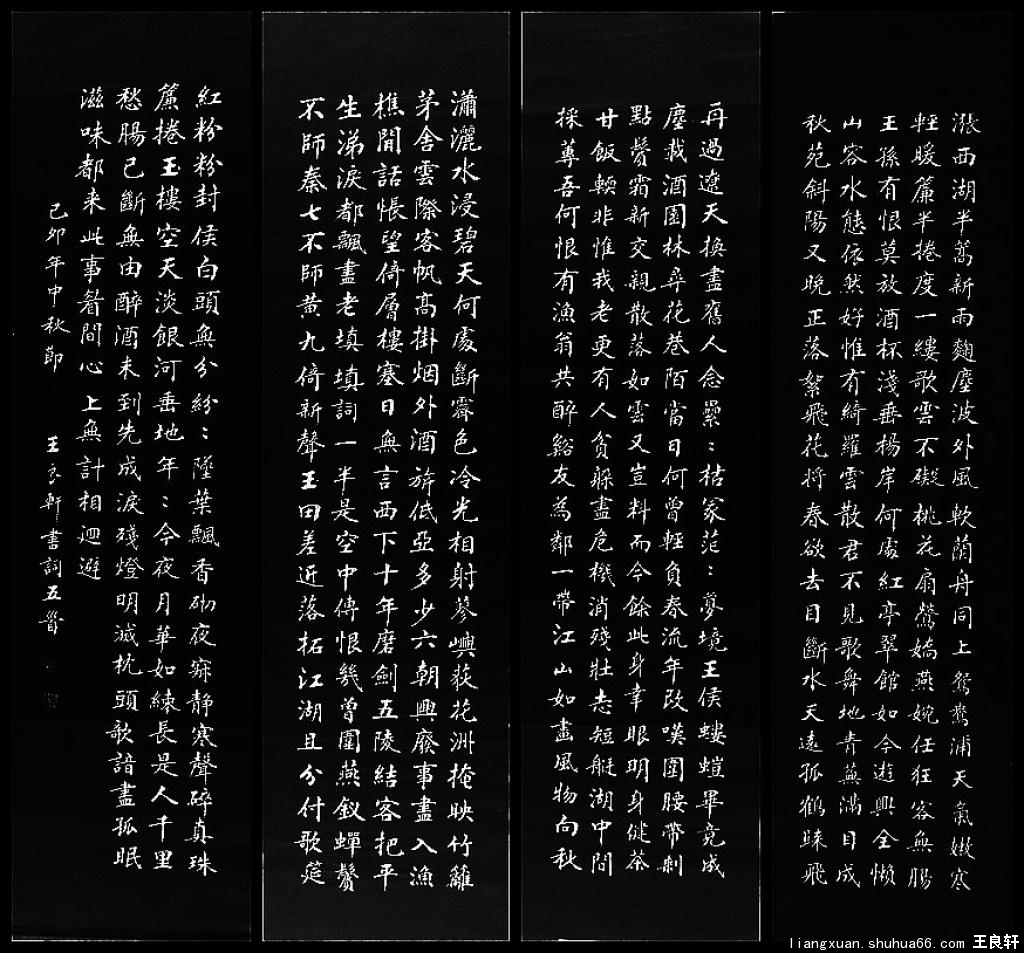 漲西湖半篙新雨麴塵波外風軟蘭舟同上鴛鴦浦天氣嫩寒
輕暖簾半捲度一縷歌雲不礙桃花扇鶯嬌燕婉任狂客無腸
王孫有恨莫放酒杯淺垂楊岸何處紅亭翠館如今遊興全懶
山容水態依然好惟有綺羅雲散君不見歌舞地青蕪滿目成
秋苑斜陽又晚正落絮飛花將春欲去目斷水天遠孤鶴睞飛
再過遼天換盡舊人念纍:枯冢茫:夢境王侯螻螘畢竟成
塵載酒園林尋花巷陌當日何曾輕負春流年改嘆圍腰帶剩
點鬢霜新交親散落如雲又豈料而今餘此身幸眼明身健茶
甘飯輭非惟我老更有人貧躲盡危機消殘壯志短艇湖中閒
採蓴吾何恨有漁翁共醉谿友為鄰一帶江山如畫風物向秋
瀟灑水浸碧天何處斷霽色冷光相射蓼嶼荻花洲掩映竹籬
茅舍雲際客帆高掛烟外酒旆低亞多少六朝興廢事盡入漁
樵閒話悵望倚層樓塞日無言西下十年磨劍五陵結客把平
生涕淚都飄盡老填填詞一半是空中傳恨幾曾圍燕釵蟬鬢
不師秦七不師黃九倚新聲玉田差近落拓江湖且分付歌筵
紅粉粉封侯白頭無分紛:墜葉飄香砌夜寂靜寒聲碎真珠
簾捲玉樓空天淡銀河垂地年:今夜月華如練長是人千里
愁腸已斷無由醉酒未到先成淚殘燈明滅枕頭歌諳盡孤眠
滋味都來此事眉間心上無計相迴避
己卯年中秋節 王良軒書詞五首
liangxuan.shuhua66.com 王良轩